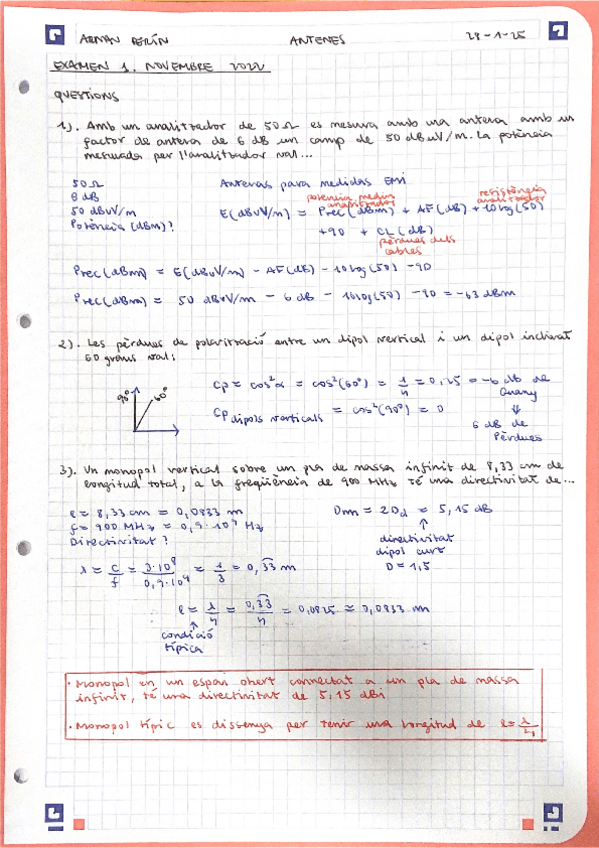 ARNAU FERÍN ANTENES 23-1-25
EXAMEN 1. NOVEMBRE 2022
QÜESTIONS
1). Amb un analitzador de 50Ω es mesura amb una antena amb un
factor de antena de 6 dB un camp de 50 dBuV/m. La potència
mesurada per l'analitzador val...
50 Ω Antenas para medidas EMI
6 dB potencia medim analitzador resistència analitzador
50 dBuV/m E(dBuV/m) = Prec(dBm) + AF(dB) + 10log(50)
Potència (dBm)? +90 + CL(dB)
pèrdues dels
cables
Prec(dBm) = E(dBuV/m) - AF(dB) - 10log(50) - 90
Prec(dBm) = 50 dBuV/m - 6 dB - 10log(50) - 90 = -63 dBm
2). Les pèrdues de polarització entre un dipol vertical i un dipol inclinat
60 graus val:
90° 60° Cp = cos²α = cos²(60°) = 1/4 = 0,25 = -6 dB de
Guany
⇓
Cp dipols verticals = cos²(90°) = 0
6 dB de
Pèrdues
3). Un monopol vertical sobre un pla de massa infinit de 8,33 cm de
longitud total, a la freqüència de 900 MHz té una directivitat de...
l = 8,33 cm = 0,0833 m Dm = 2Dd = 5,15 dB
f = 900 MHz = 0,9·10⁹ Hz ↑
Directivitat? directivitat
dipol curt
D = 1,5
λ = c/f = 3·10⁸/0,9·10⁹ = 1/3 = 0,33 m
l = λ/4 = 0,33/4 = 0,0825 ≈ 0,0833 m
↑
condició
típica
· Monopol en un espai obert connectat a un pla de massa
infinit, té una directivitat de 5,15 dBi
· Monopol típic es dissenya per tenir una longitud de l = λ/4